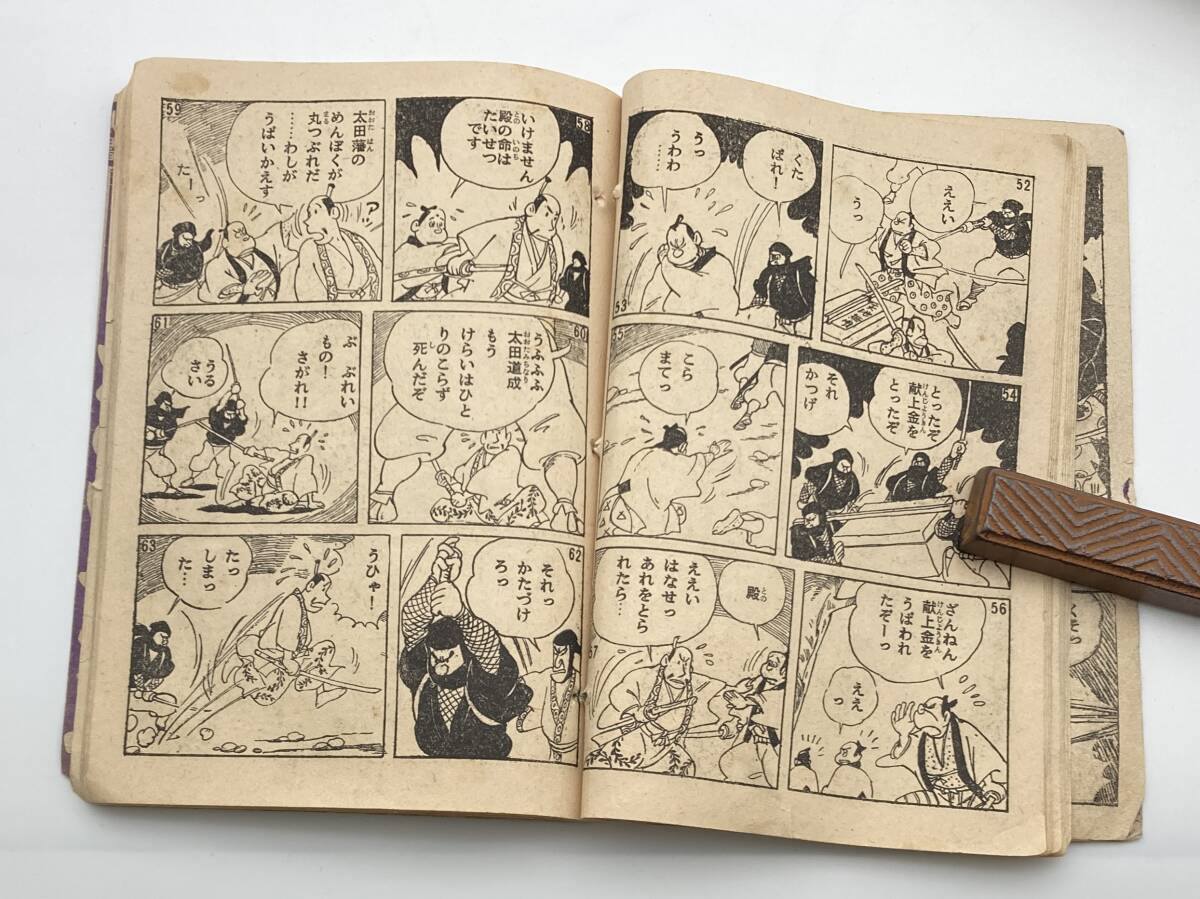 52
ええい
うっ
くた
ばれ！
うっ
うわわ
……
53
54
とったぞ
献上金を
けんじょうきん
とったぞ
それ
かつげ
55
こら
まてっ
56
ざんねん
献上金を
けんじょうきん
うばわれ
たぞーっ
ええ
っ
殿
との
ええい
はなせっ
あれをとら
れたら…
57
58
いけません
殿の命は
との いのち
たいせつ
です
59
太田藩の
おおた はん
めんぼくが
丸つぶれだ
まる
……わしが
うばいかえす
?
たーっ
60
うふふふ
太田道成
おおたみちなり
もう
けらいはひと
りのこらず
死んだぞ
し
61
ぶ ぶれい
もの！
さがれ!!
うる
さい
62
それっ
かたづけ
ろっ
63
うひゃ！
たっ
しまっ
た…